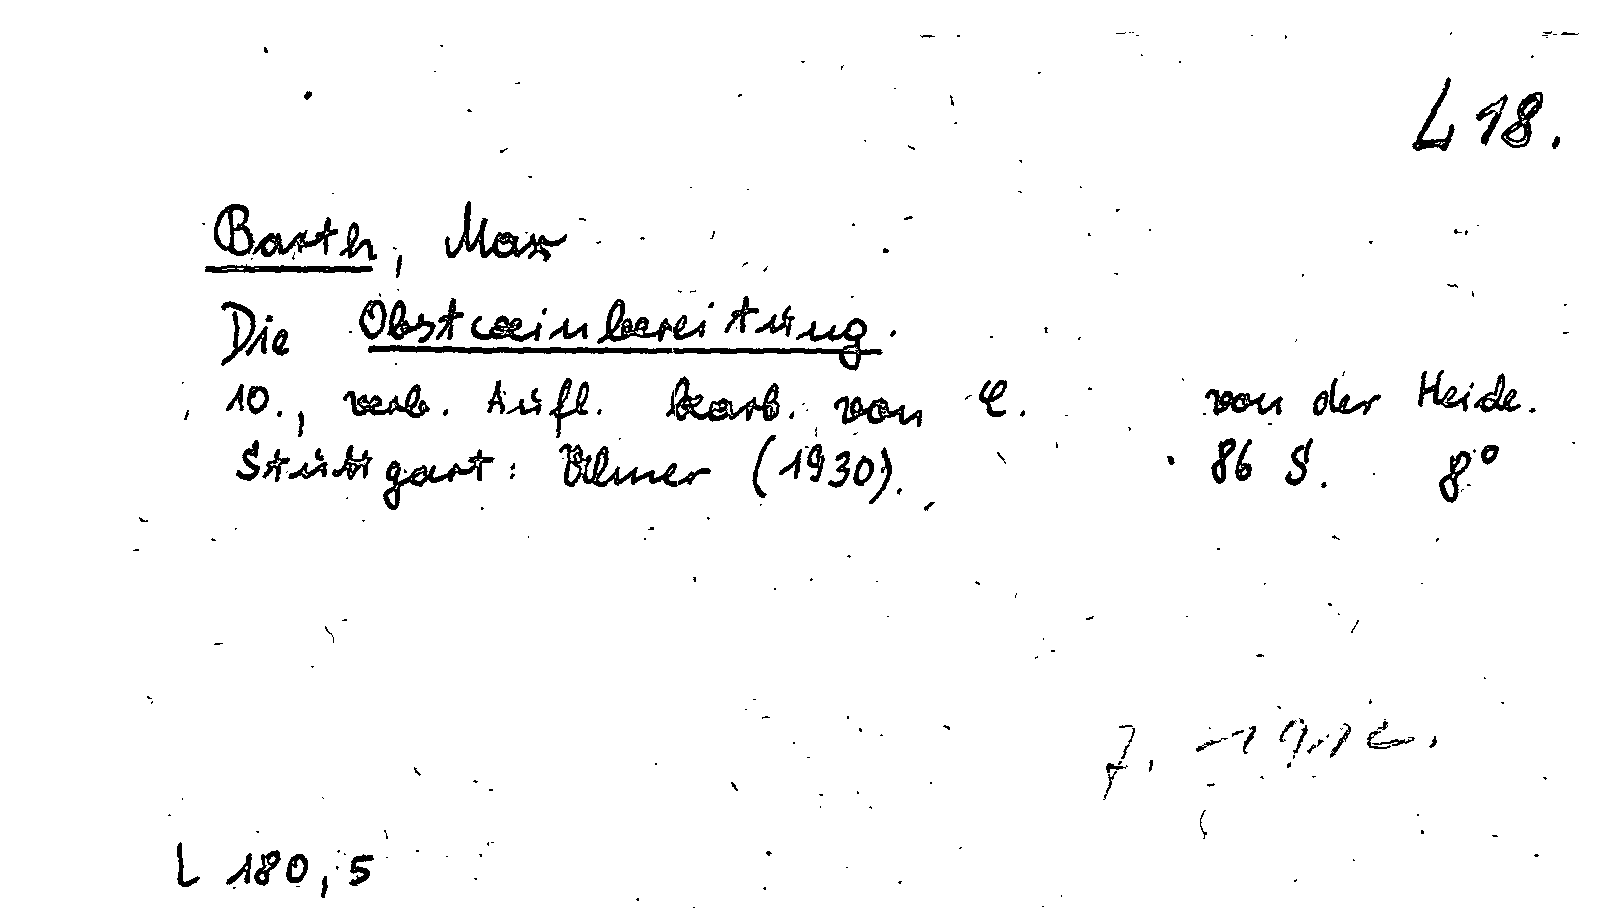 L 18.
Barth, Max
Die Obstweinbereitung.
10., verb. Aufl. bearb. von C. von der Heide.
Stuttgart: Ulmer (1930). 86 S. 8°
L 180,5